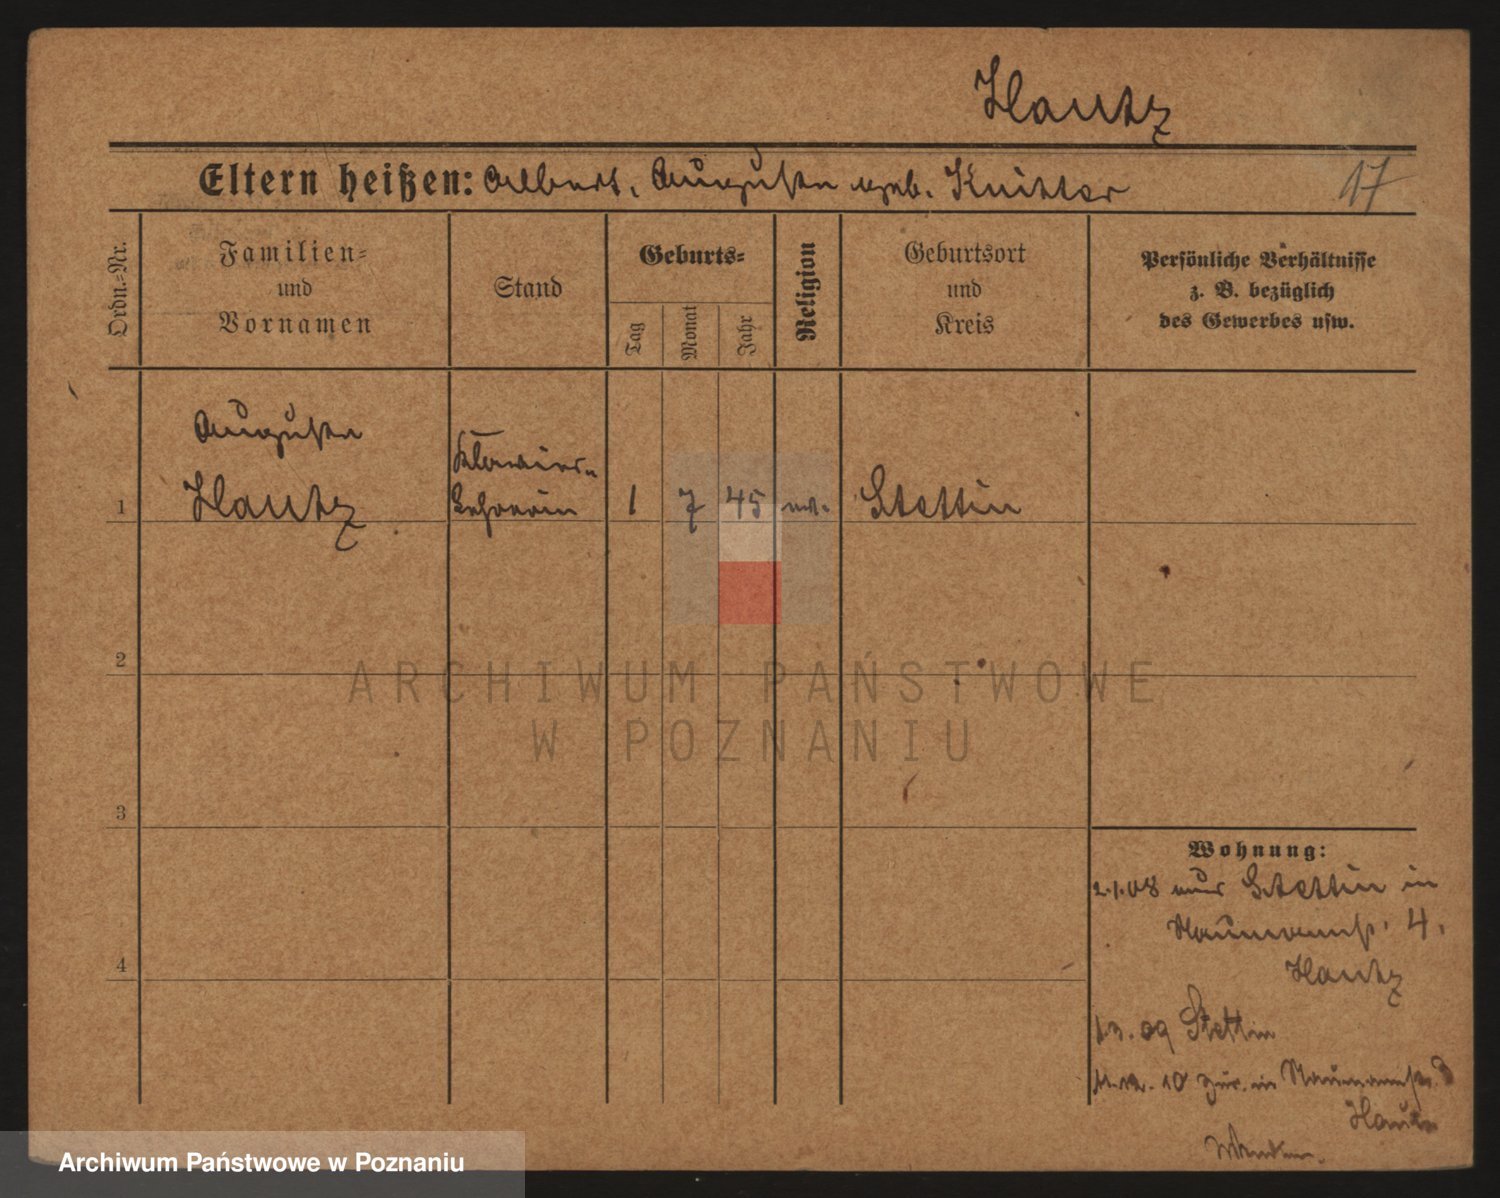 Hautz
Eltern heißen: Albert, Auguste geb. Knitter
17
Ordn.-Nr.
Familien-
und
Vornamen
Stand
Geburts-
Tag
Monat
Jahr
Religion
Geburtsort
und
Kreis
Persönliche Verhältnisse
z. B. bezüglich
des Gewerbes usw.
Auguste
Hautz
Klavier-
Lehrerin
1
1
7
45
ev.
Stettin
2
3
4
Wohnung:
2.1.08 aus Stettin in
Naumannst. 4.
Hautz
1.3.09 Stettin
10 zur. in Naumannstr.
Hautz
ARCHIWUM PAŃSTWOWE
W POZNANIU
Archiwum Państwowe w Poznaniu